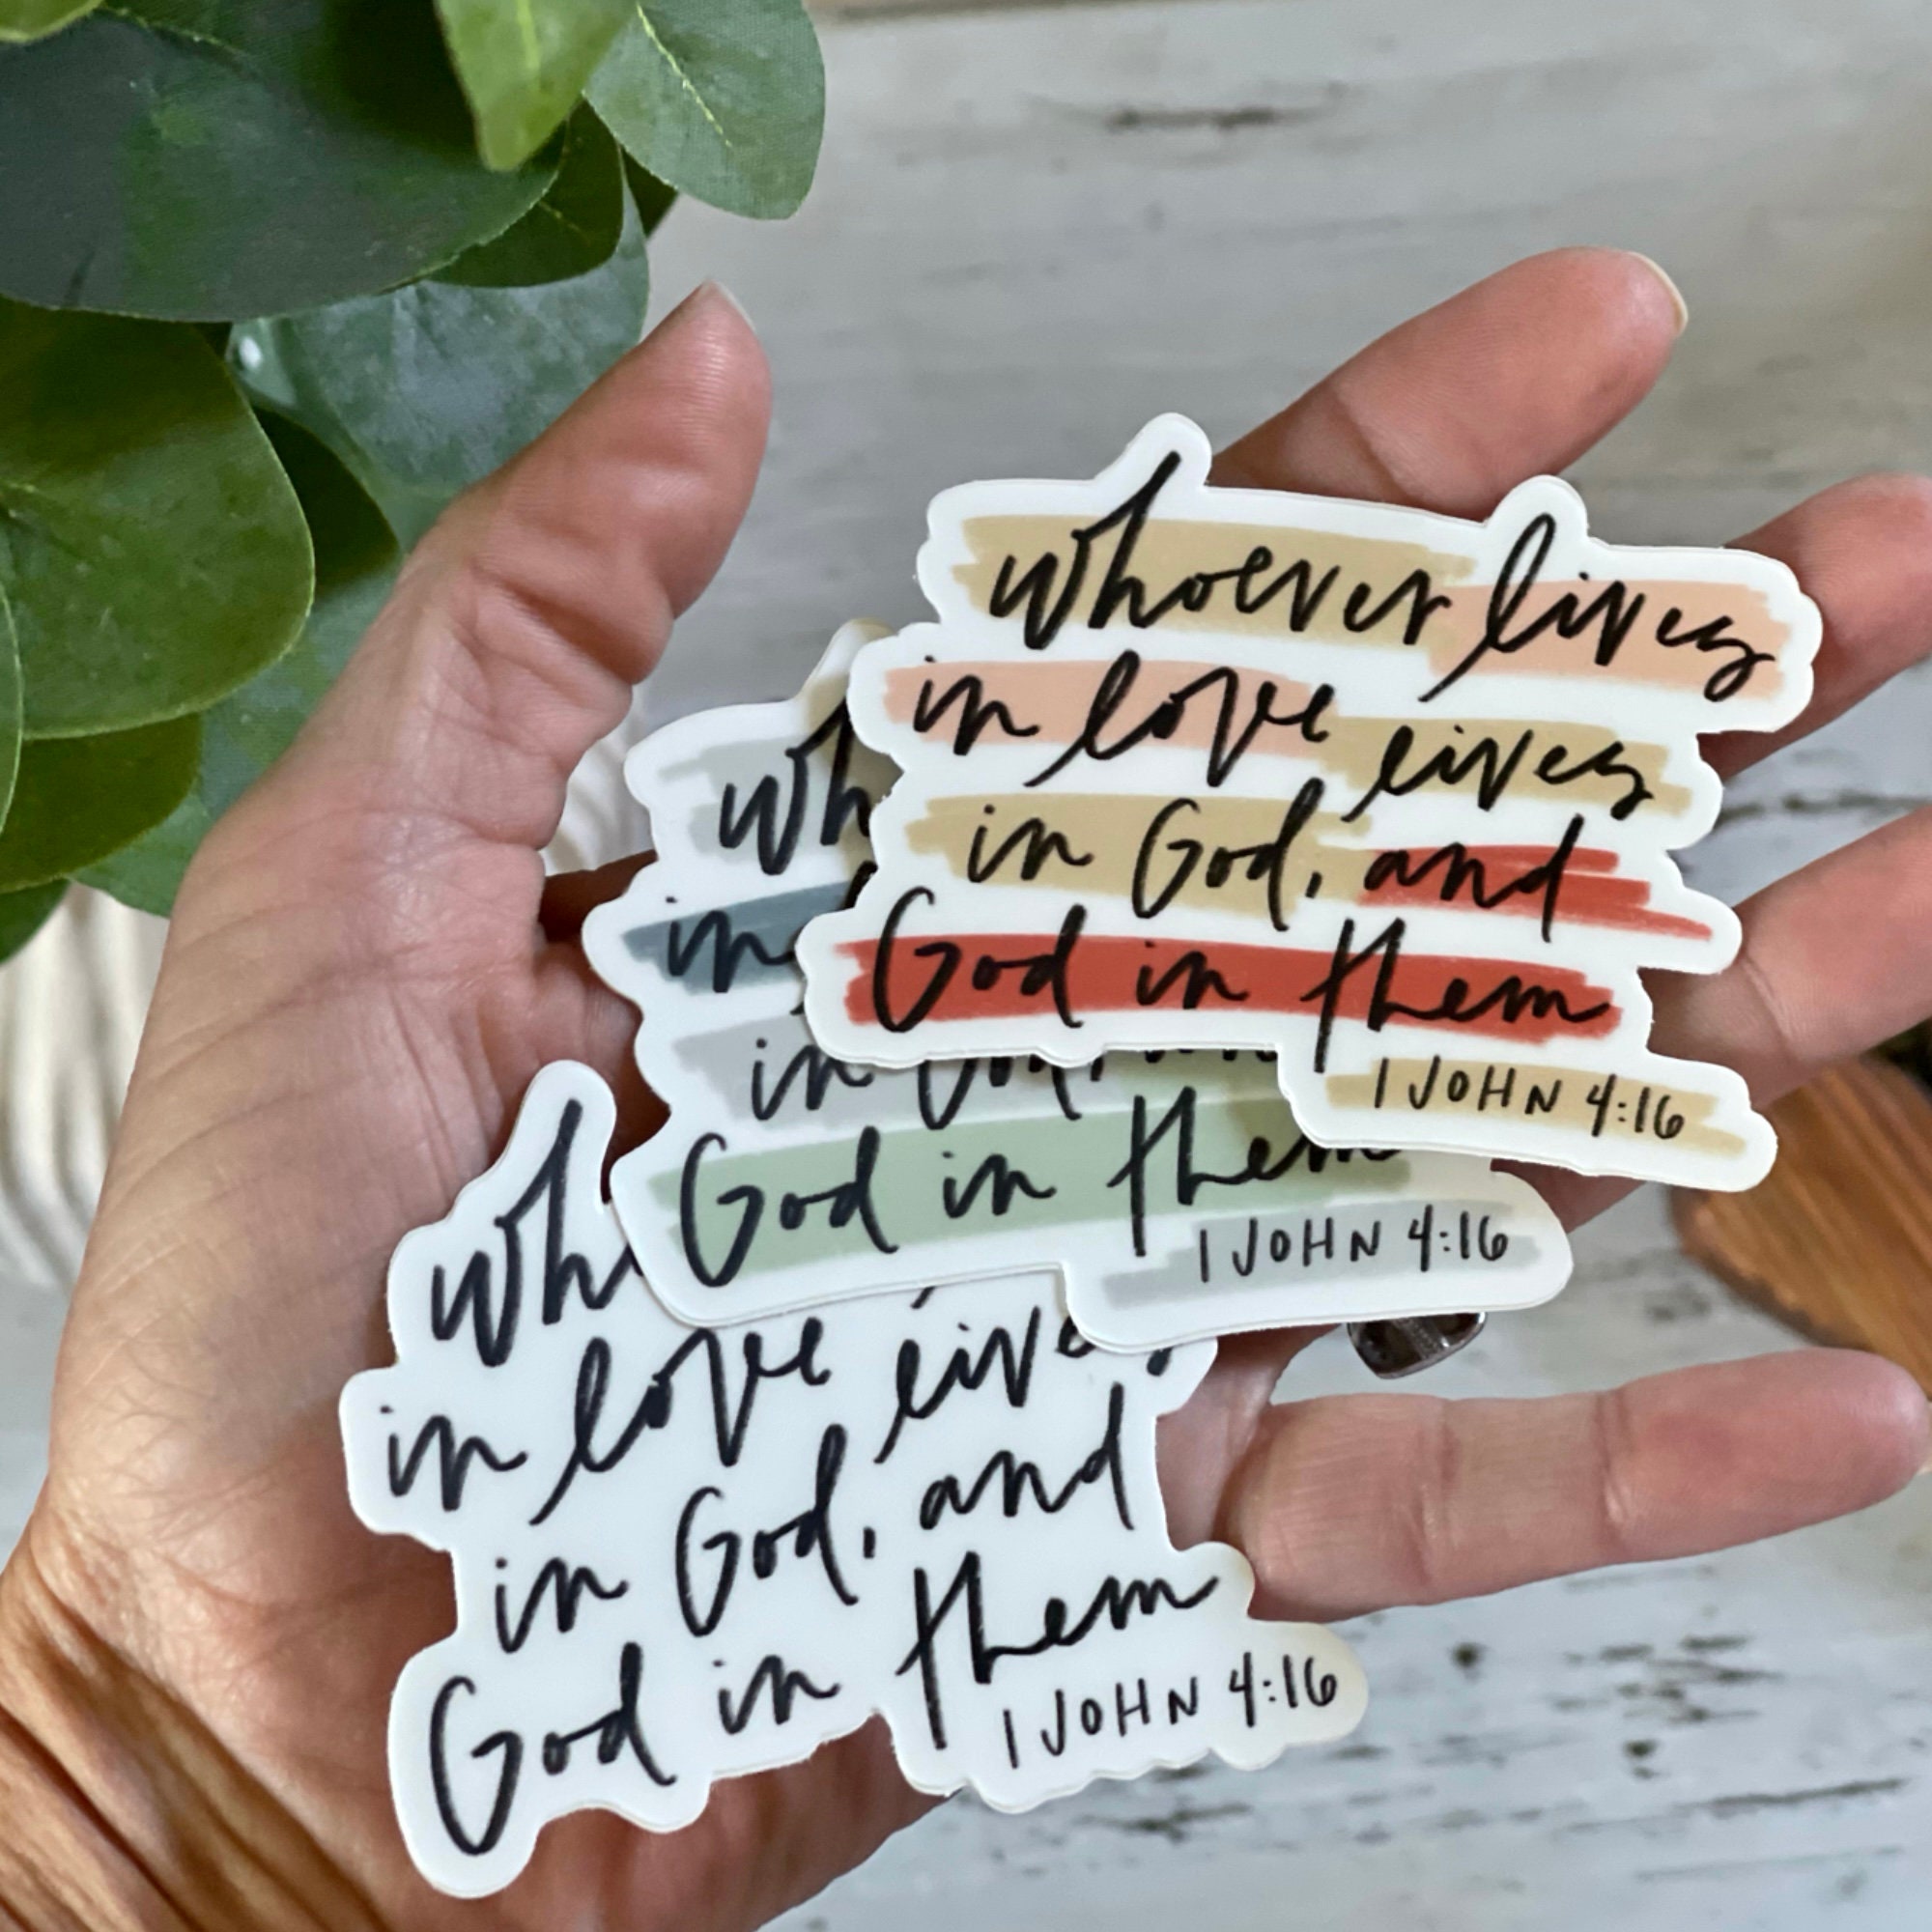 whoever lives
in love lives
in God, and
God in them
1 JOHN 4:16
in
in God,
God in them
1 JOHN 4:16
in love lives
in God, and
God in them
1 JOHN 4:16